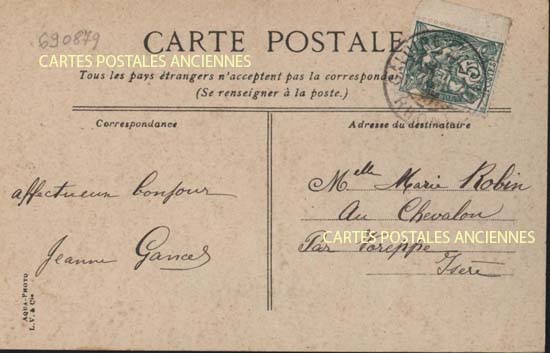 690879
CARTE POSTALE
CARTES POSTALES ANCIENNES
Tous les pays étrangers n'acceptent pas la correspond
(Se renseigner à la poste.)
Correspondance
Adresse du destinataire
affectueux bonjour
Jeanne
Melle Marie Robin
Au Chevalon
CARTES POSTALES ANCIENNES
Par Voreppe
Isère
AQUA-PHOTO
L. V. & Cie